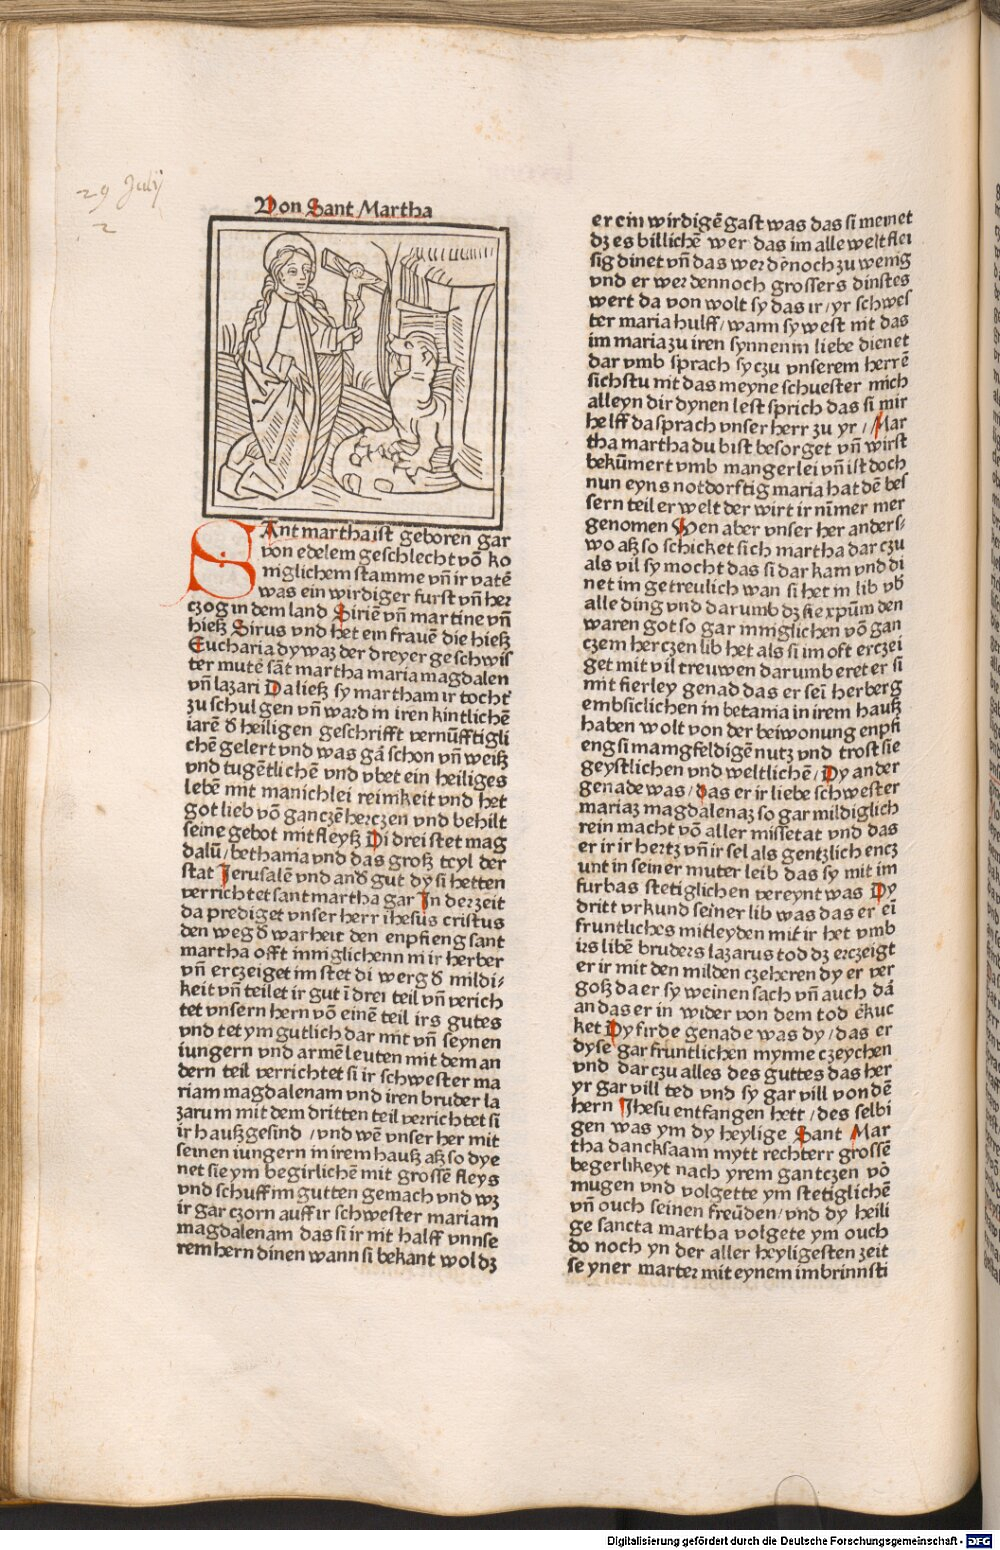 29 July
2
Von Sant Martha
SAnt martha ist geboren gar
von edelem geschlecht võ ko
niglichem stamme vñ ir vatẽ
was ein wirdiger furst vñ her
czog in dem land Siriẽ vñ martine vñ
hieß Sirus vnd het ein frauẽ die hieß
Eucharia dy waz der dreyer geschwis
ter mutẽ sãt martha maria magdalen
vñ lazari Da ließ sy martham ir tocht͛
zu schul gen vñ ward in iren kintlichẽ
iarẽ d͛ heiligen geschrifft vernũfftigli
chẽ gelert vnd was gã schon vñ weiß
vnd tugẽtlichẽ vnd vbet ein heiliges
lebẽ mit manichlei reinikeit vnd het
got lieb võ ganczẽ herczen vnd behilt
seine gebot mit fleyß Di drei stet mag
dalũ/ bethania vnd das groß teyl der
stat Jerusalẽ vnd and͛ gut dy si hetten
verrichtet sant martha gar In der zeit
da prediget vnser herr ihesus cristus
den weg d͛ warheit den enpfieng sant
martha offt inniglichenn in ir herber
vñ erczeiget im stet di werg d͛ mildi⸗
keit vñ teilet ir gut ĩ drei teil vñ verich
tet vnsern hern võ einẽ teil irs gutes
vnd tet ym gutlich dar mit vñ seynen
iungern vnd armẽ leuten mit dem an
dern teil verrichtet si ir schwester ma
riam magdalenam vnd iren bruder la
zarum mit dem dritten teil verrichtet si
ir haußgesind /vnd wẽ vnser her mit
seinen iungern in irem hauß aß so dye
net sie ym begirlichẽ mit grossẽ fleys
vnd schuff im gutten gemach vnd wz
ir gar czorn auff ir schwester mariam
magdalenam das si ir nit halff vnnse
rem hern dinen wann si bekant wol dz
er ein wirdigẽ gast was das si meinet
dz es billichẽ wer das im alle welt flei
sig dinet vñ das wer dẽnoch zu wenig
vnd er wer dennoch grossers dinstes
wert da von wolt sy das ir/yr schwes
ter maria hulff/wann sy west nit das
im maria zu iren synnen in liebe dienet
dar vmb sprach sy czu vnserem herrẽ
sichstu nit das meyne schuester mich
alleyn dir dynen lest sprich das si mir
helff da sprach vnser herr zu yr //Mar
tha martha du bist besorget vñ wirst
bekũmert vmb mangerlei vñ ist doch
nun eyns notdorftig maria hat dẽ bes
sern teil er welt der wirt ir nĩmer mer
genomen Wen aber vnser her anders⸗
wo aß so schicket sich martha dar czu
als vil sy mocht das si dar kam vnd di
net im getreulich wan si het in lib vb͛
alle ding vnd darumb dz sie xpũm den
waren got so gar inniglichen võ gan
czem herczen lib het als si im oft erczei
get mit vil treuwen darumb eret er si
mit fierley genad das er seĩ herberg
embsiclichen in betania in irem hauß
haben wolt von der beiwonung enpfi
eng si manigfeldigẽ nutz vnd trost sie
geystlichen vnd weltlichẽ/Dy ander
genade was/das er ir liebe schwester
mariaz magdalenaz so gar mildiglich
rein macht võ aller missetat vnd das
er ir ir hertz vñ ir sel als gentzlich encz
unt in seiner muter leib das sy mit im
furbas stetiglichen vereynt was Dy
dritt vrkund seiner lib was das er eĩ
fruntliches mitleyden mit ir het vmb
irs libẽ bruders lazarus tod dz erczeigt
er ir mit den milden czeheren dy er ver
goß da er sy weinen sach vñ auch dã
an das er in wider von dem tod ẽkuc
ket Dy firde genade was dy/das er
dyse gar fruntlichen mynne czeychen
vnd dar czu alles des guttes das her
yr gar vill ted vnd sy gar vill von dẽ
hern Jhesu entfangen hett/des selbi
gen was ym dy heylige Sant Mar
tha dancksaam mytt rechterr grossẽ
begerlikeyt nach yrem gantczen võ
mugen vnd volgette ym stetiglichẽ
vñ ouch seinen freũden/vnd dy heili
ge sancta martha volgete ym ouch
do noch yn der aller heyligesten zeit
seyner marter mit eynem imbrinnsti
Digitalisierung gefördert durch die Deutsche Forschungsgemeinschaft - DFG